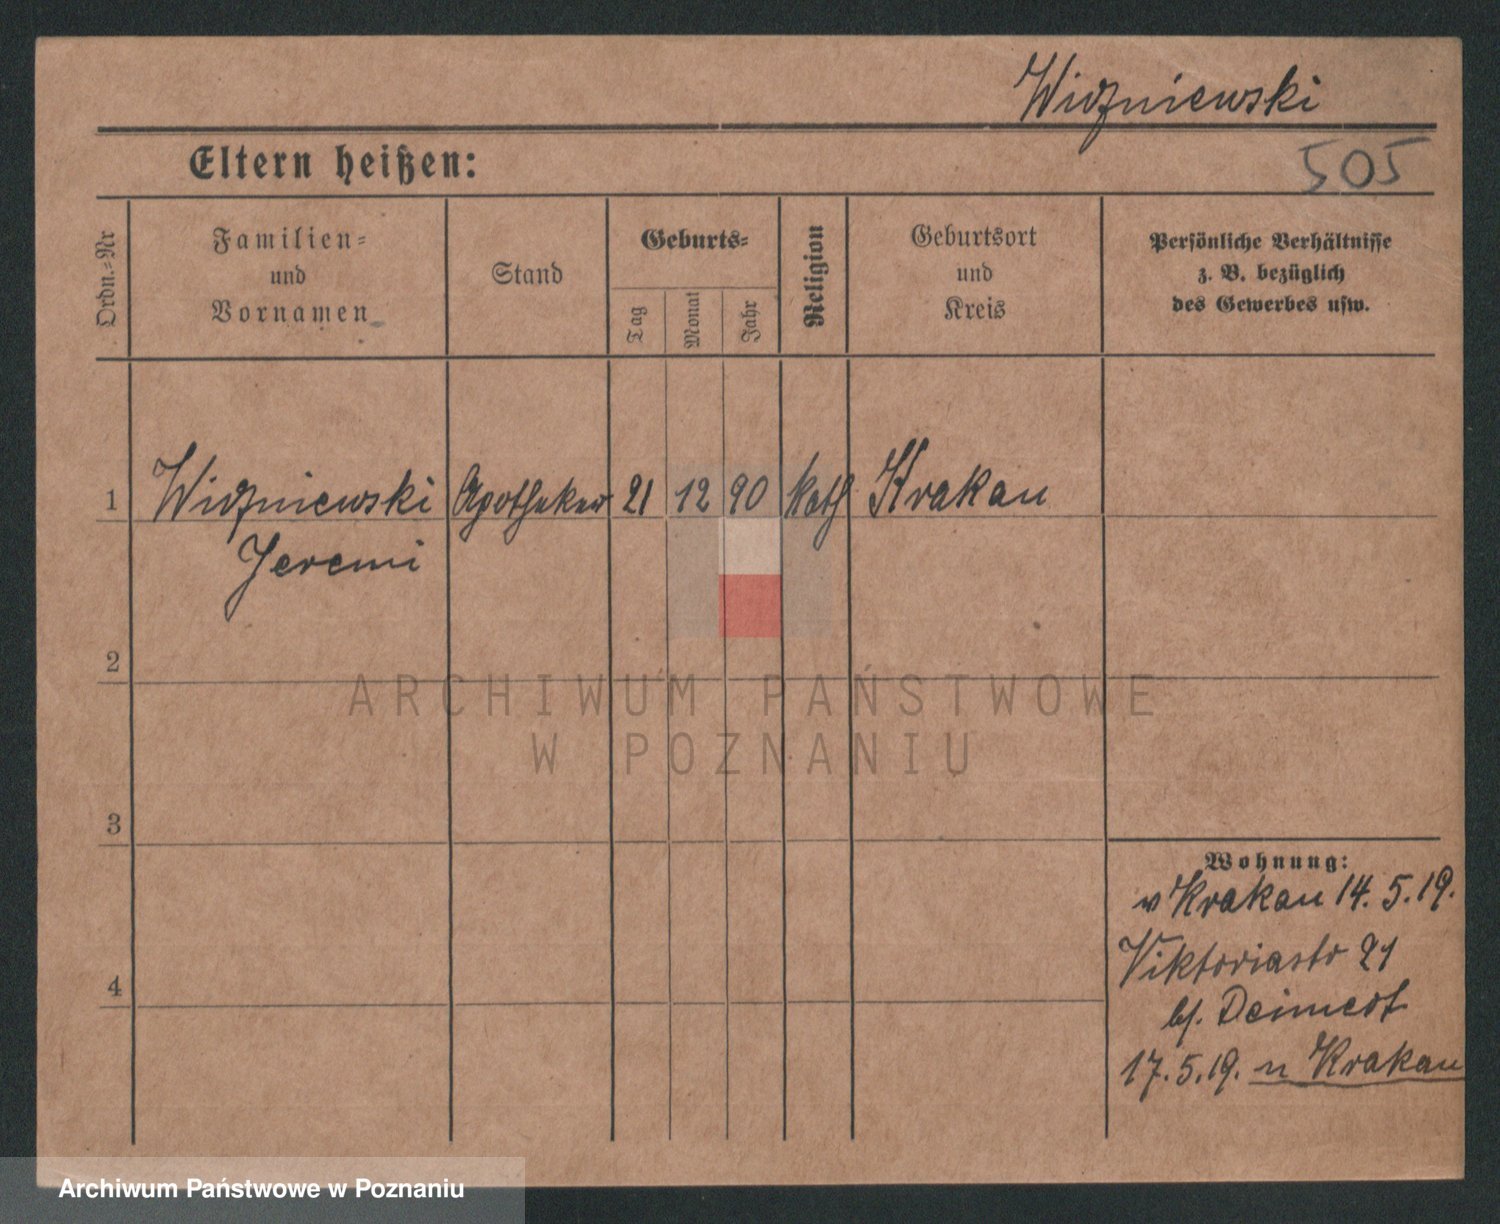 Widzniewski
Eltern heißen:
505
Ordn.-Nr
Familien-
und
Vornamen
Stand
Geburts-
Tag
Monat
Jahr
Religion
Geburtsort
und
Kreis
Persönliche Verhältnisse
z. B. bezüglich
des Gewerbes usw.
1 Widzniewski Apotheker 21 12 90 kath Krakau
Jeremi
2
ARCHIWUM PAŃSTWOWE
W POZNANIU
3
Wohnung:
v Krakau 14. 5. 19.
Viktoriastr 21
4
bf.
17. 5. 19. n Krakau
Archiwum Państwowe w Poznaniu